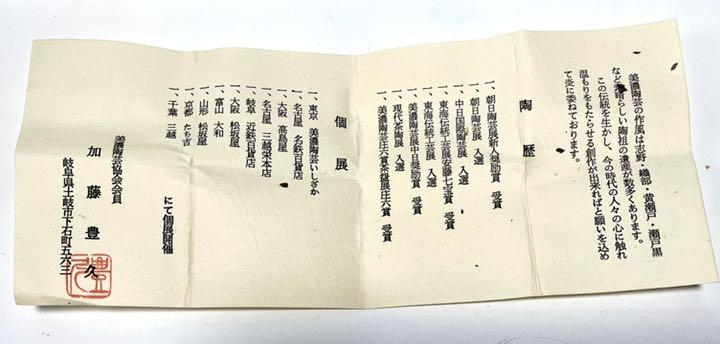 美濃陶芸の作風は志野・織部・黄瀬戸・瀬戸黒
など素晴らしい陶祖の遺産が数多くあります。
この伝統を生かし、今の時代の人々の心に触れ
温もりをもたらせる創作が出来ればと願いを込め
て炎に委ねております。
陶歴
一、朝日陶芸展新人奨励賞 受賞
一、朝日陶芸展 入選
一、中日国際陶芸展 入選
一、東海伝統工芸展 入選
一、東海伝統工芸展安藤七宝賞 受賞
一、美濃陶芸展中日奨励賞 受賞
一、現代茶陶展 入選
一、美濃陶芸庄六賞茶盌展庄六賞 受賞
個展
一、東京 美濃陶芸いしざか
一、名古屋 名鉄百貨店
一、大阪 高島屋
一、名古屋 三越栄本店
一、岐阜 近鉄百貨店
一、大阪 松坂屋
一、富山 大和
一、山形 松坂屋
一、京都 たち吉
一、千葉 三越
にて個展開催
美濃陶芸協会会員
加藤豊久
岐阜県土岐市下石町五六三